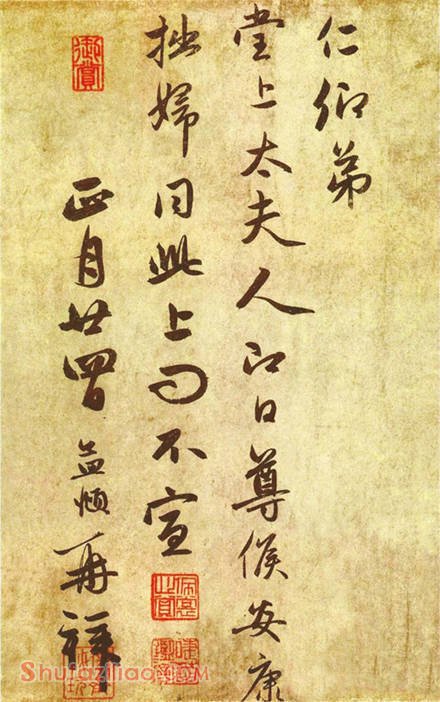 仁卿弟
堂上太夫人即日尊候安康
拙婦同此上問不宣
御賞
正月廿四日 孟頫 再拜
Shufaziliao.COM